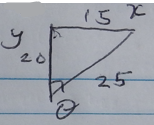 15 x
y
20
25
θ